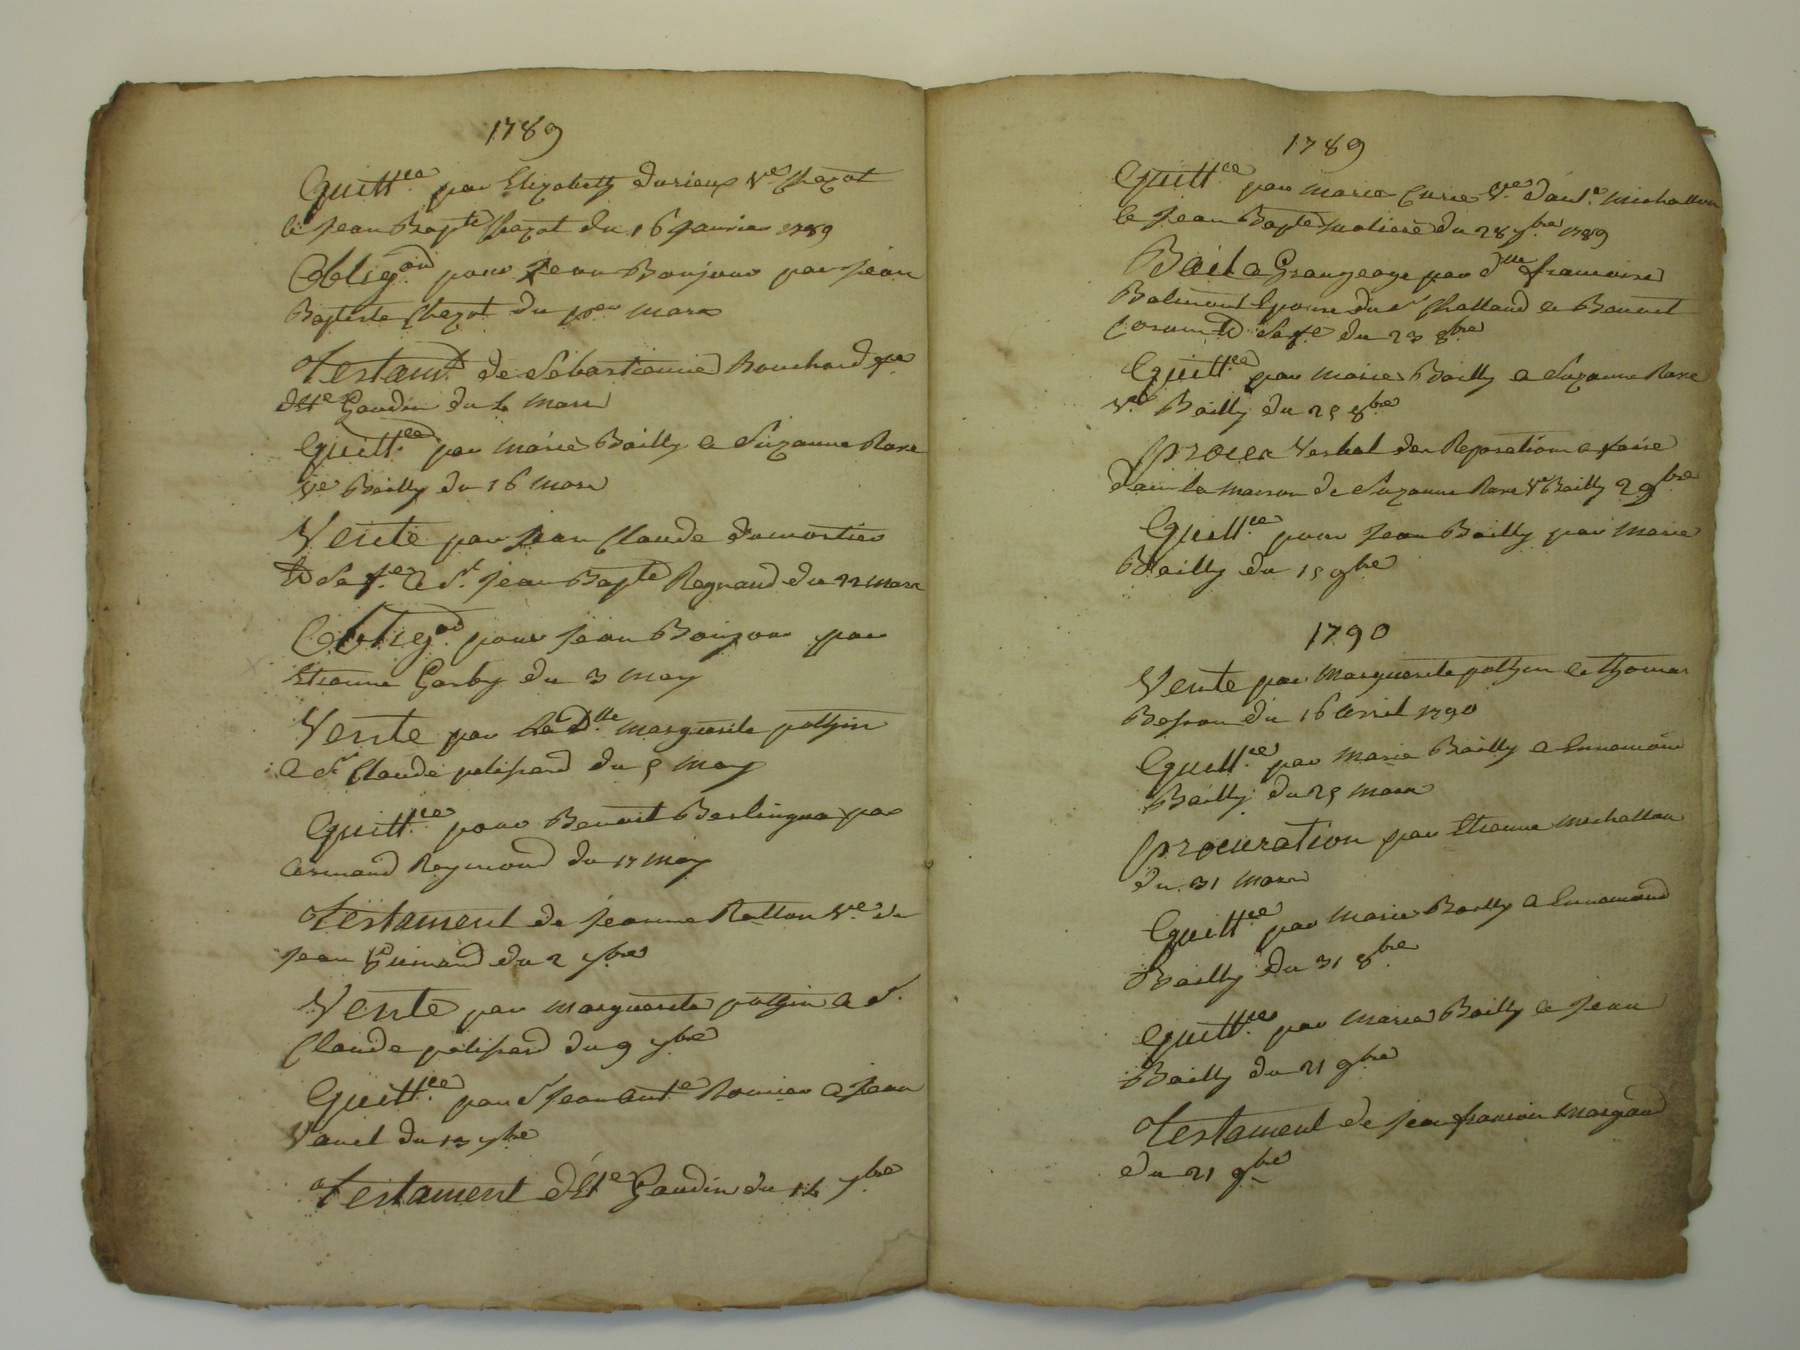 1789
Quitt.ce par Elizabeth durieux Ve Chazot
à Jean Bapte Chazot du 16 Janvier 1789
Oblig.on pour Jean Bonjour par Jean
Baptiste Chazot du 1er mars
Testamt de Sébastienne Bouchard fe
d'Ete Gaudin du 4 mars
Quitt.ce par marie Bailly a Suzanne Raxe
Ve Bailly du 16 mars
Vente par Jean Claude dumortier
et Sa fe a Sr Jean Bapte Regnaud du 22 mars
Oblig.on pour Jean Bonjour par
Etienne Garby du 3 may
Vente par la Dlle marguerite pothin
a Sr Claude pelissard du 5 may
Quitt.ce pour Benoit Berlingua par
armand Reymond du 17 may
Testament de Jeanne Ratton Ve de
Jean du 2 7bre
Vente par marguerite pothin a Sr
Claude pelissard du 9 7bre
Quitt.ce par Sr Jean Ante Rounier a Jean
Vanel du 13 7bre
Testament d'Ete Gaudin du 14 7bre
1789
Quitt.ce par marie Curie Ve d'ant.e michallon
a Jean Bapte du 28 7bre 1789
Bail a Grangeage par dlle francoise
Balmont Epouse du sr Challand a Benoit
et Sa fe du 23 8bre
Quitt.ce par marie Bailly a Suzanne Raxe
Ve Bailly du 25 8bre
procex Verbal des Reparations a faire
dans la maison de Suzanne Raxe Ve Bailly 2 9bre
Quitt.ce pour Jean Bailly par marie
Bailly du 15 9bre
1790
Vente par marguerite pothin a thomas
Besson du 16 avril 1790
Quitt.ce par marie Bailly a Ennemond
Bailly du 25 mars
procuration par Etienne michallon
du 31 mars
Quitt.ce par marie Bailly a Ennemond
Bailly du 31 8bre
Quitt.ce par marie Bailly a Jean
Bailly du 21 9bre
Testament de Jean francois margand
du 21 9bre